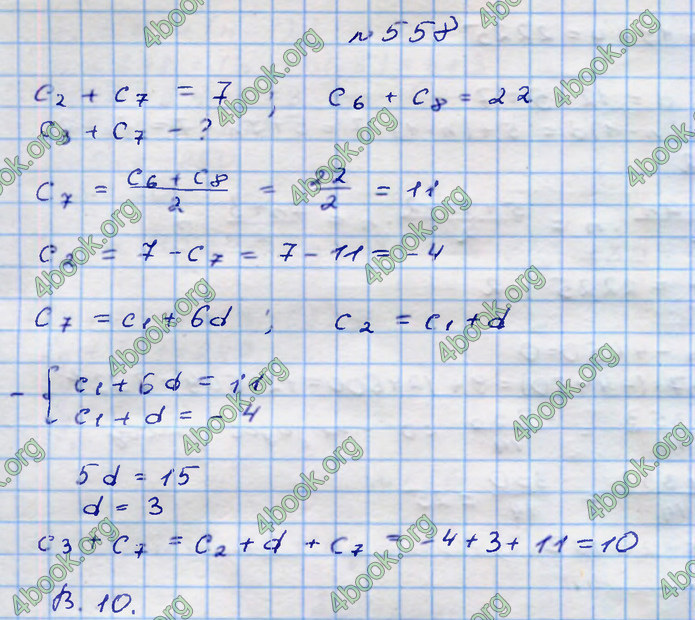 № 558
c₂ + c₇ = 7 ; c₆ + c₈ = 22
c₃ + c₇ - ?
c₇ = (c₆ + c₈)/2 = 22/2 = 11
c₂ = 7 - c₇ = 7 - 11 = -4
c₇ = c₁ + 6d ; c₂ = c₁ + d
- { c₁ + 6d = 11
c₁ + d = -4
5d = 15
d = 3
c₃ + c₇ = c₂ + d + c₇ = -4 + 3 + 11 = 10
В. 10.
4book.org